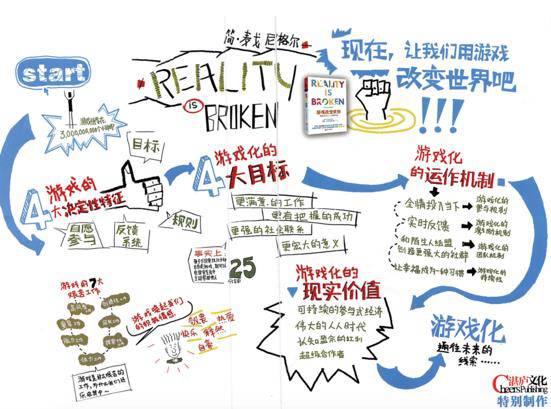 简·麦戈尼格尔
REALITY
IS
BROKEN
现在，让我们用游戏
改变世界吧
!!!
REALITY
IS
BROKEN
游戏改变世界
start
游戏的
4大决定性特征
目标
规则
反馈
系统
自愿
参与
游戏化的
4大目标
更满意的工作
更有把握的成功
更强的社会联系
更宏大的意义
游戏化
的运作机制
全情投入当下
游戏化的
参与机制
实时反馈
游戏化的
激励机制
和陌生人结盟
创造更强大的社群
游戏化的
团队机制
让幸福成为一种习惯
游戏化的
持续性
事实上
25
游戏的7大
艰苦工作
游戏激起我们
的积极情感
游戏化的
现实价值
可持续的参与式经济
伟大的人人时代
认知盈余的红利
超级合作者
游戏化
通往未来的
线索……
湛庐文化
Cheers Publishing
特别制作